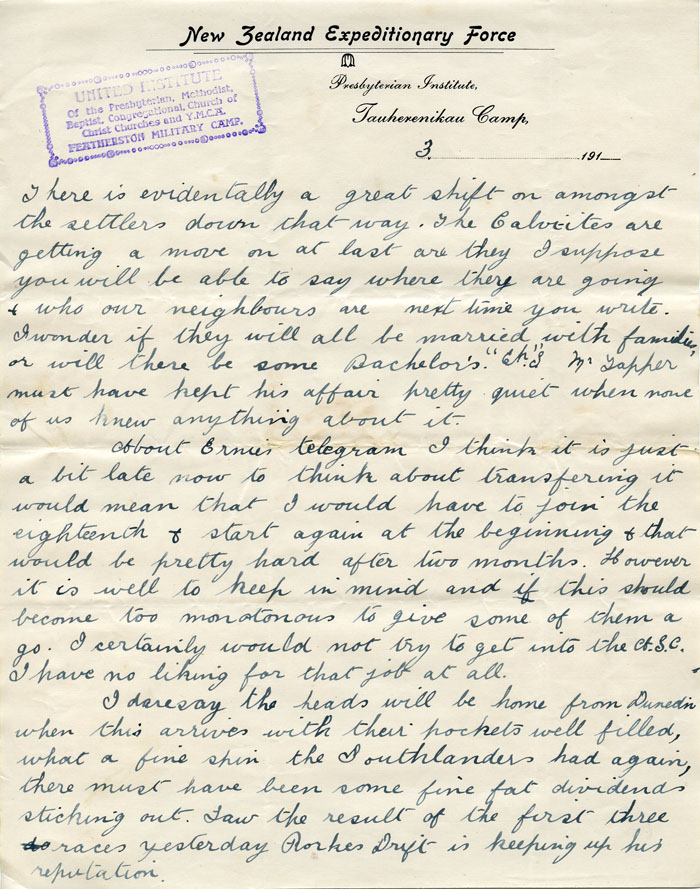 New Zealand Expeditionary Force
UNITED INSTITUTE
Of the Presbyterian, Methodist,
Baptist, Congregational, Church of
Christ Churches and Y.M.C.A.
FEATHERSTON MILITARY CAMP.
Presbyterian Institute,
Tauherenikau Camp,
3 191
There is evidentally a great shift on amongst
the settlers down that way. The Calvciites are
getting a move on at last are they I suppose
you will be able to say where they are going
& who our neighbours are next time you write.
I wonder if they will all be married with families,
or will there be some Bachelor's. Mr Tapper
must have kept his affair pretty quiet when none
of us knew anything about it.
About Ernies telegram I think it is just
a bit late now to think about transfering it
would mean that I would have to join the
eighteenth & start again at the beginning & that
would be pretty hard after two months. However
it is well to keep in mind and if this should
become too monotonous to give some of them a
go. I certainly would not try to get into the A.S.C.
I have no liking for that job at all.
I daresay the heads will be home from Dunedin
when this arrives with their pockets well filled,
what a fine spin the Southlanders had again,
there must have been some fine fat dividends
sticking out. I saw the result of the first three
races yesterday Rorkes Drift is keeping up his
reputation.